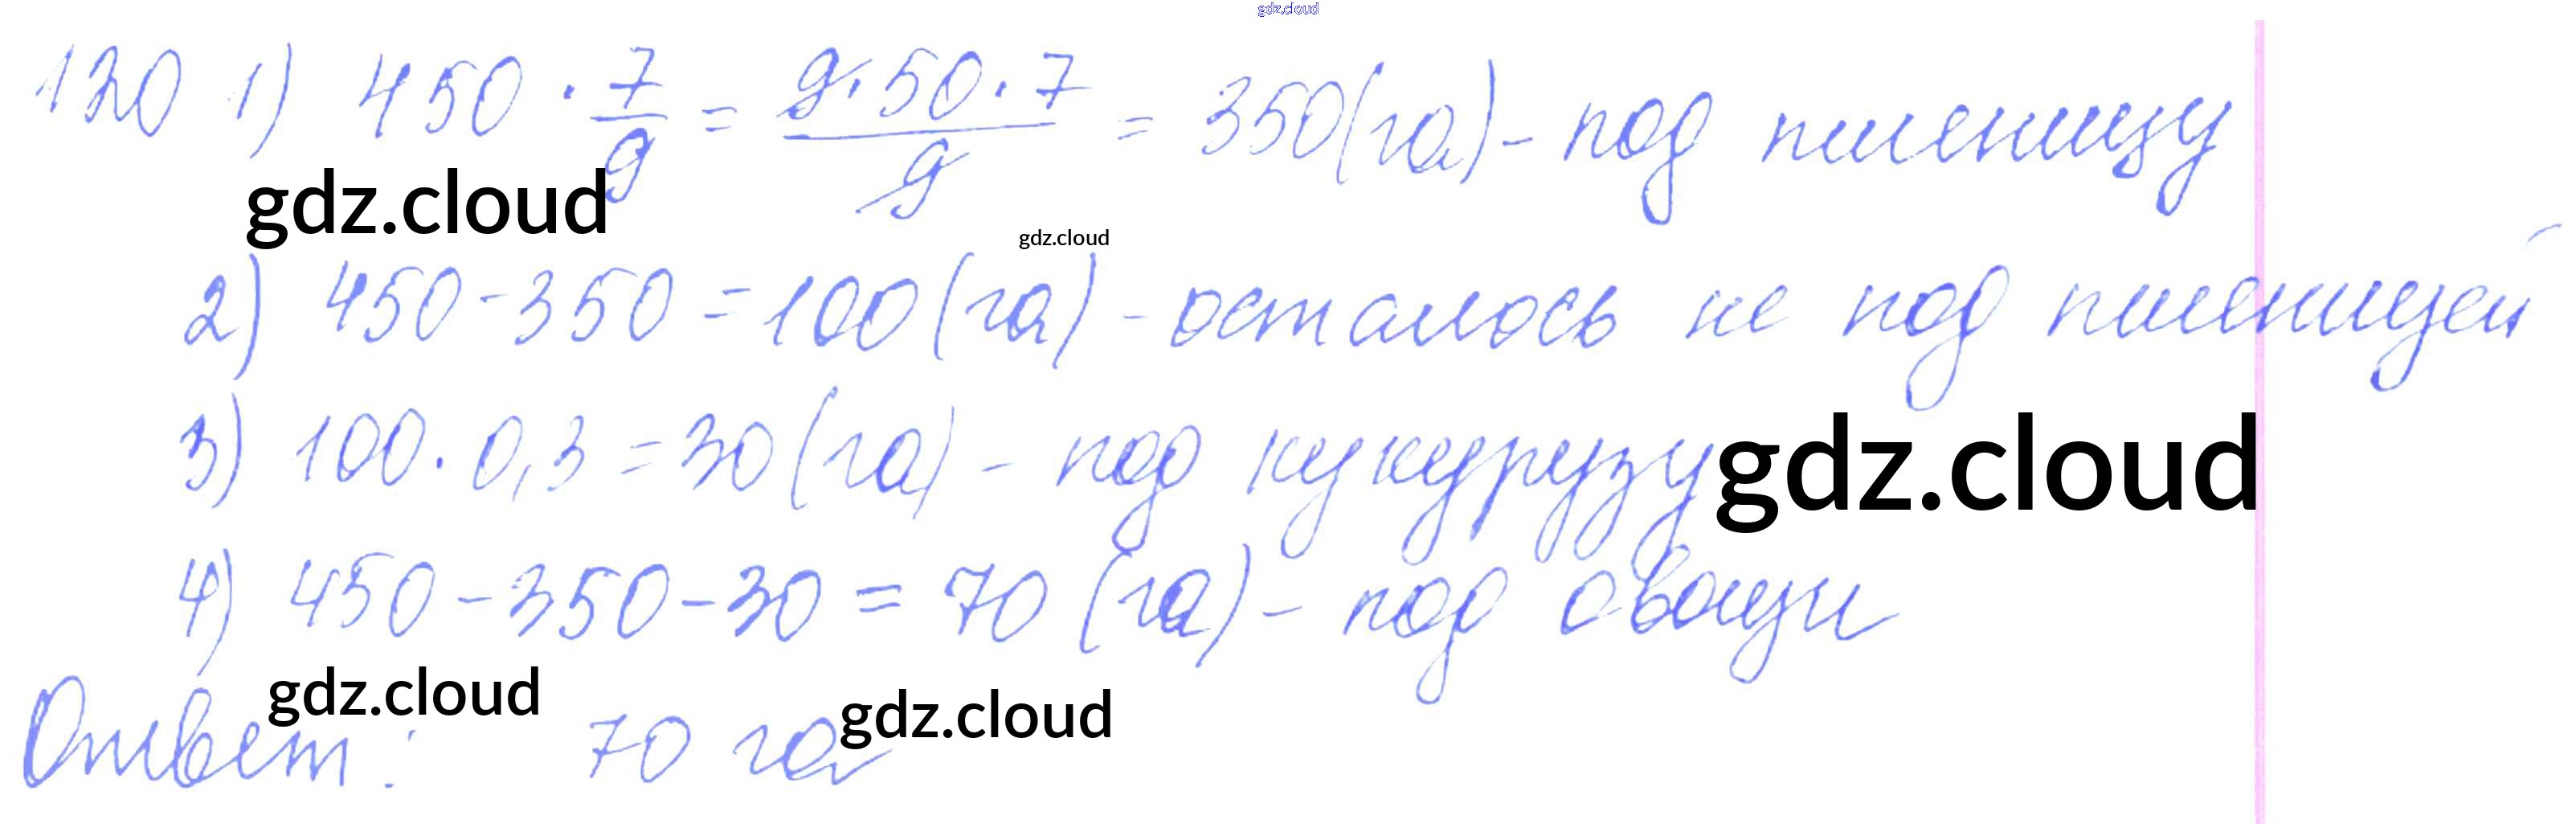 gdz.cloud
120 1) 450 · 7/9 = 9·50·7/9 = 350 (га) - под пшеницу
gdz.cloud
gdz.cloud
2) 450 - 350 = 100 (га) - осталось не под пшеницей
3) 100 · 0,3 = 30 (га) - под кукурузу
gdz.cloud
4) 450 - 350 - 30 = 70 (га) - под овощи
gdz.cloud
gdz.cloud
Ответ: 70 га